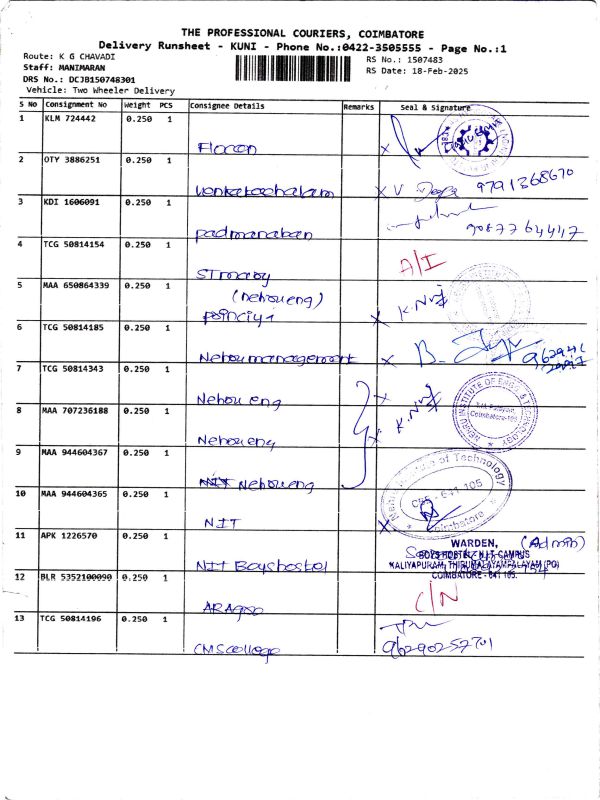 THE PROFESSIONAL COURIERS, COIMBATORE
Delivery Runsheet - KUNI - Phone No.:0422-3505555 - Page No.:1
Route: K G CHAVADI
Staff: MANIMARAN
DRS No.: DCJB150748301
Vehicle: Two Wheeler Delivery
RS No.: 1507483
RS Date: 18-Feb-2025
S No Consignment No Weight PCS Consignee Details Remarks Seal & Signature
1 KLM 724442 0.250 1
2 OTY 3886251 0.250 1
Venkatachalam X V 9791368670
3 KDI 1606091 0.250 1
padmanaban 9087764447
4 TCG 50814154 0.250 1
A/I
STmary
5 MAA 650864339 0.250 1
(Nehru eng)
X
6 TCG 50814185 0.250 1
Nehru management X B.
7 TCG 50814343 0.250 1
Nehru eng X
NEHRU INSTITUTE OF ENGG. & TECHNOLOGY
Coimbatore-105
8 MAA 707236188 0.250 1
Nehru eng X
9 MAA 944604367 0.250 1
Nehru eng
Nehru Institute of Technology
CBE - 641 105
Coimbatore
10 MAA 944604365 0.250 1
NIT X
11 APK 1226570 0.250 1
WARDEN, (Admin)
BOYS HOSTEL, N.I.T-CAMPUS
NIT Boys hostel KALIYAPURAM, THIRUMALAYAMPALAYAM (PO)
COIMBATORE - 641 105.
12 BLR 5352100090 0.250 1
C/N
13 TCG 50814196 0.250 1
CMS college 96290257701